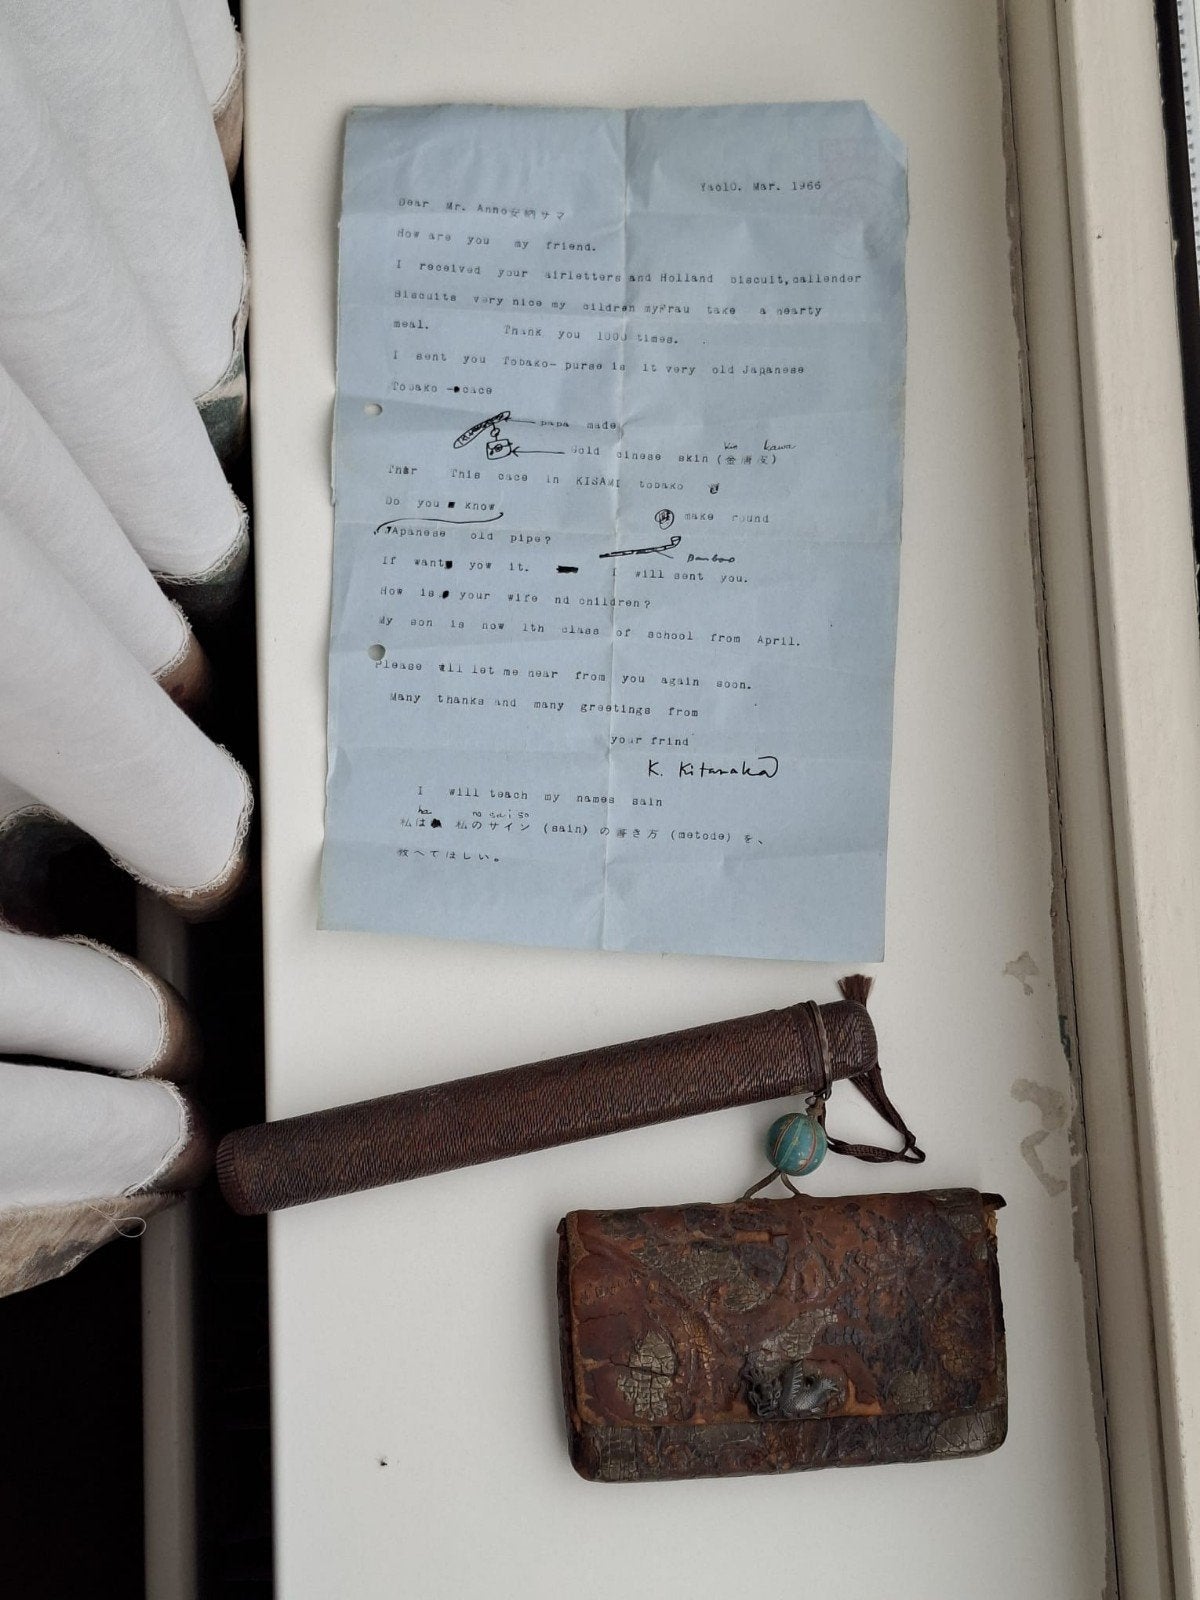 Yao10. Mar. 1966
Dear Mr. Anno安納サマ
How are you my friend.
I received your airletters and Holland biscuit,callender
Biscuits very nice my cildren myFrau take a hearty
meal. Thank you 1000 times.
I sent you Tobako- purse is it very old Japanese
Tobako - cace
papa made
Kin kawa
Gold cinese skin (金唐皮)
This cace in KISAMI tobako
Do you know
make round
Japanese old pipe?
Bamboo
If want yow it. I will sent you.
How is your wife nd children?
My son is now 1th class of school from April.
Please will let me hear from you again soon.
Many thanks and many greetings from
your frind
K. Kitanaka
I will teach my names sain
ha no
私は 私のサイン (sain) の書き方 (metode) を、
教へてほしい。